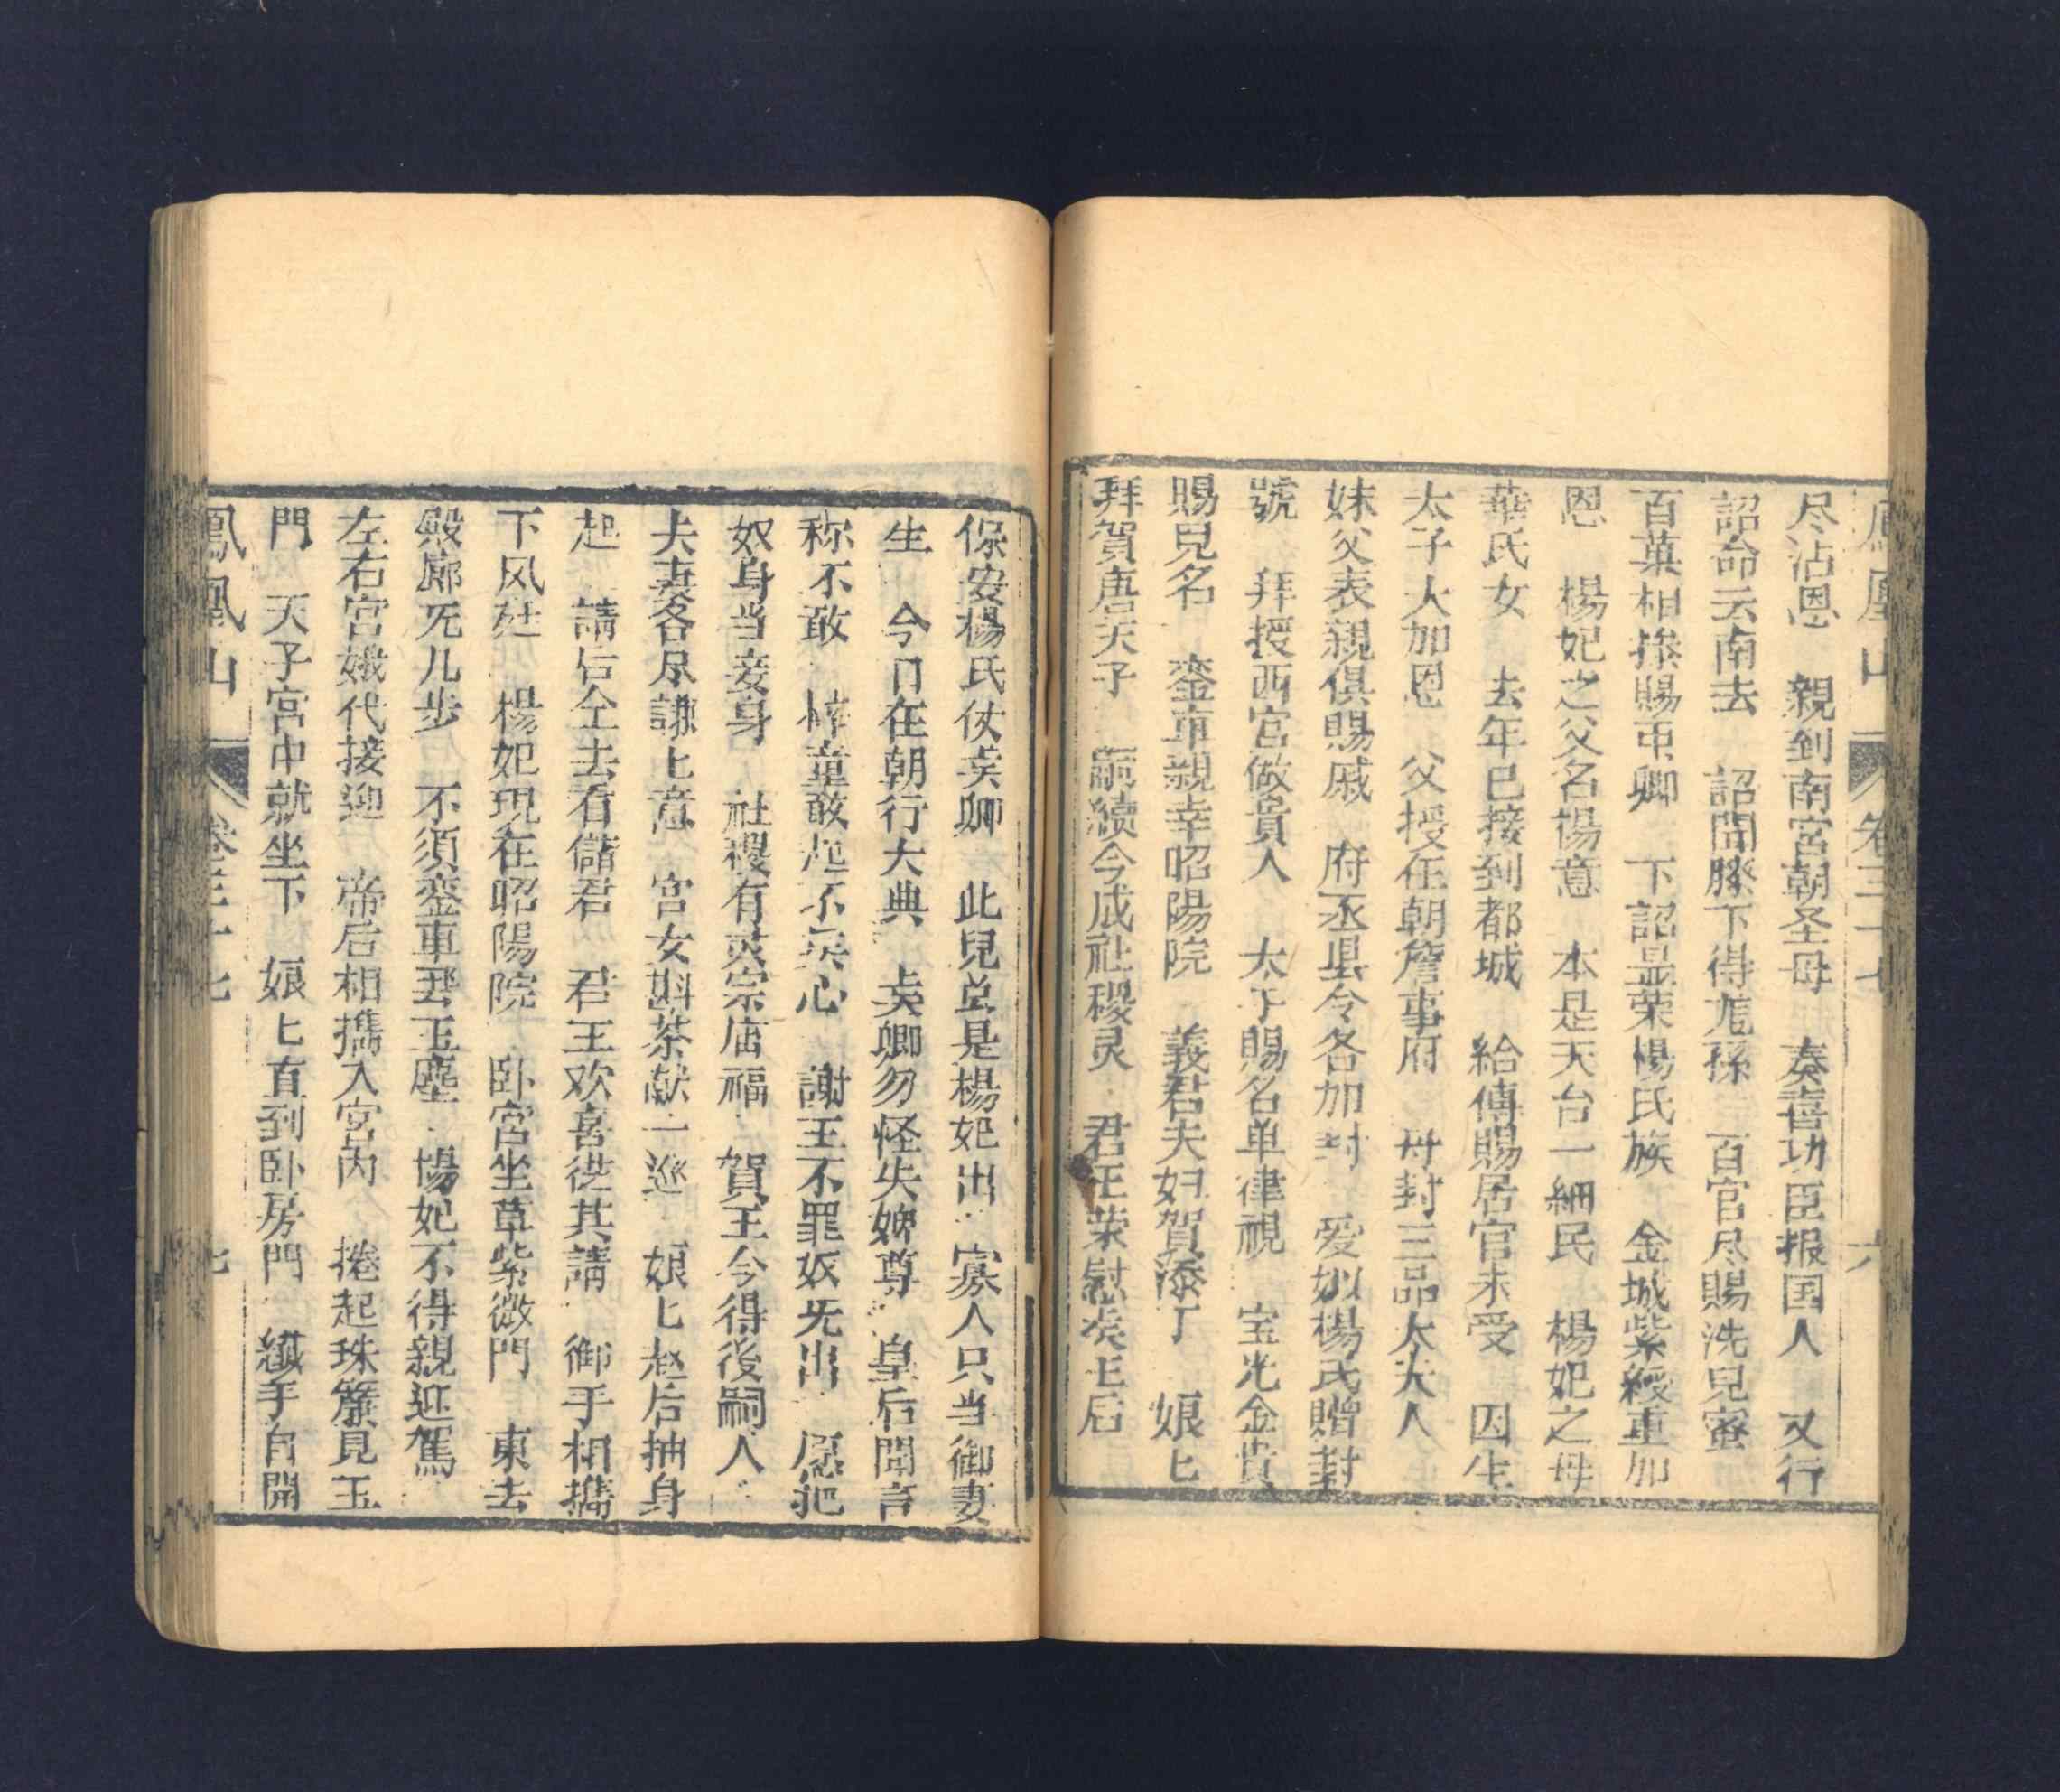 鳳凰山 卷三十七 六
尽沾恩 親到南宮朝圣母 奏喜功臣报国人 又行
詔命云南去 詔問滕下得尨孫 百官尽賜洗兒蜜
百菓相掺賜甲卿 下詔显荣楊氏族 金城紫綬重加
恩 楊妃之父名楊意 本是天台一細民 楊妃之母
華氏女 去年已接到都城 給傳賜居官未受 因生
太子大加恩 父授在朝詹事府 母封三品太夫人
妹父表親俱賜戚 府丞县令各加封 爱姒楊氏贈封
號 拜授西宮做貴人 太子賜名单律視 宝光金貴
賜兒名 銮車親幸昭陽院 義君夫妇賀添丁 娘匕
拜賀唐天子 嗣續今成社稷灵 君王荣慰矣王后
保安楊氏仗矣卿 此兒虽是楊妃出 寡人只当御妻
生 今日在朝行大典 矣卿勿怪失婢尊 皇后聞言
称不敢 悻童敢起不矣心 謝王不罪奴无出 愿把
奴身当妾身 社稷有灵宗庙福 賀王今得後嗣人
夫妻各尽謙匕意 宮女斟茶献一巡 娘匕赵后抽身
起 請旨仝去看儲君 君王欢喜從其請 御手相攜
下风廷 楊妃現在昭陽院 卧宮坐草紫微門 東去
殿廊无几步 不須銮車惹玉塵 楊妃不得親迎駕
左右宮娥代接迎 帝后相攜入宮內 捲起珠簾見玉
門 天子宮中就坐下 娘匕直到卧房門 纖手自開
鳳凰山 卷三十七 七